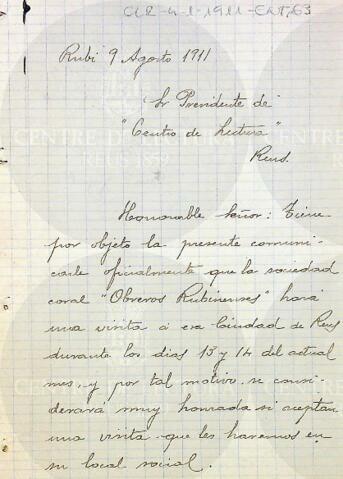 CLR-4-1-1911-ENT,63
Rubí 9 Agosto 1911
Sr Presidente de
"Centro de Lectura"
Reus.
Honorable señor: Tiene
por objeto la presente comuni-
carle oficialmente que la sociedad
coral "Obreros Rubinenses" hará
una visita á esa Ciudad de Reus
durante los dias 13 y 14 del actual
mes, y por tal motivo, se consi-
derará muy honrada si aceptan
una visita que les haremos en
su local social.